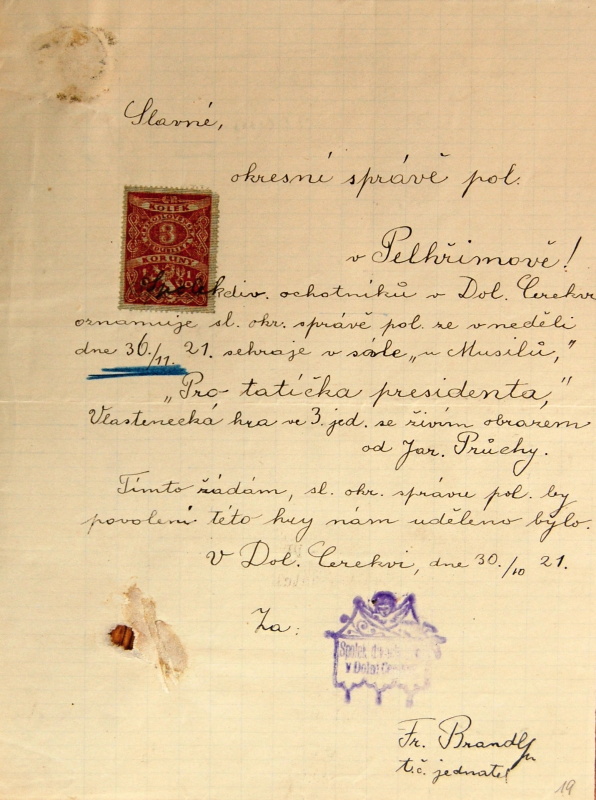 Slavné,
okresní správě pol.
KOLEK
3
KORUNY
v Pelhřimově!
Spolek div. ochotníků v Dol. Cerekvi
oznamuje sl. okr. správě pol. že v neděli
dne /11. 21. sehraje v sále „u Musilů,"
„Pro tatíčka presidenta,"
Vlastenecká hra ve 3. jed. se živím obrazem
od Jar. Průchy.
Tímto žádám, sl. okr. správu pol. by
povolení této hry nám uděleno bylo.
V Dol. Cerekvi, dne 30./10 21.
Za:
Spolek
v Dolní
Fr. Brandl
t.č. jednatel
19